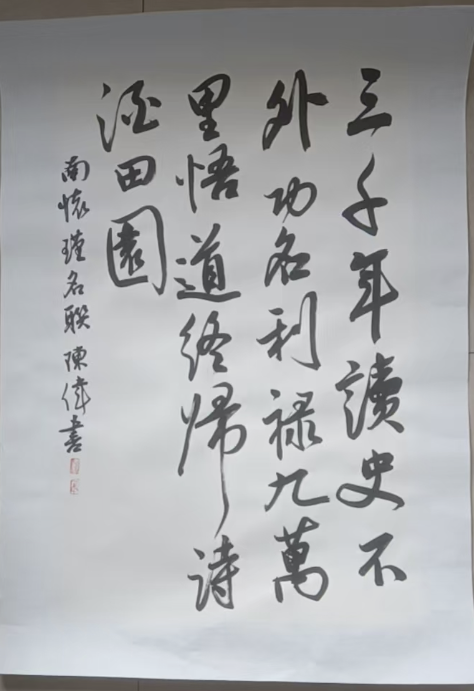 三千年讀史不
外功名利禄九萬
里悟道终歸诗
酒田園
南懷瑾名联陳偉書